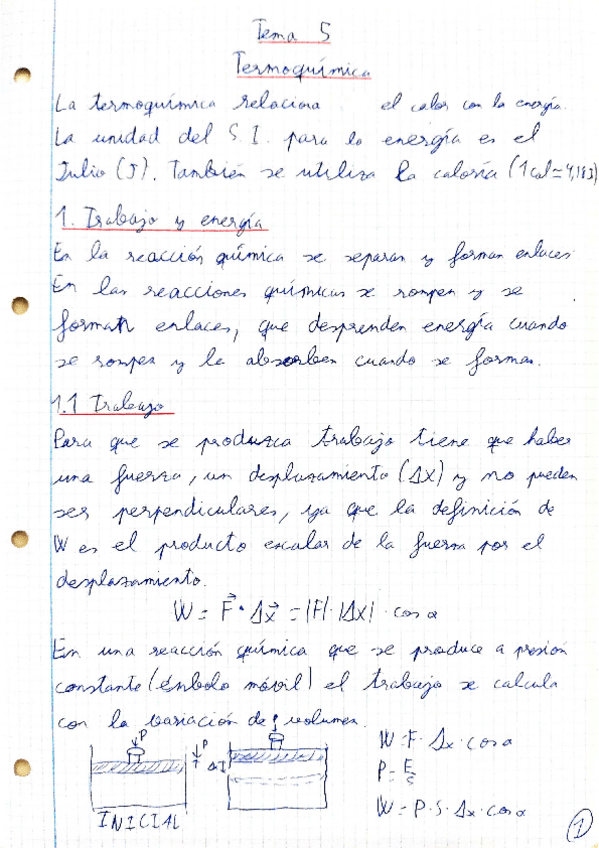 Tema 5
Termoquímica
La termoquímica relaciona el calor con la energía.
La unidad del S.I. para la energía es el
Julio (J). También se utiliza la caloría (1cal=4,18J)
1. Trabajo y energía
En la reacción química se separan y forman enlaces.
En las reacciones químicas se rompen y se
forman enlaces, que desprenden energía cuando
se rompen y la absorben cuando se forman.
1.1 Trabajo
Para que se produzca trabajo tiene que haber
una fuerza, un desplazamiento (Δx) y no pueden
ser perpendiculares, ya que la definición de
W es el producto escalar de la fuerza por el
desplazamiento.
W = F⃗ · Δx⃗ = |F|·|Δx| · cos α
En una reacción química que se produce a presión
constante (émbolo móvil) el trabajo se calcula
con la variación de volumen.
P
P
Δl
P
INICIAL
W = F · Δx · cos α
P = F/S
W = P · S · Δx · cos α
1